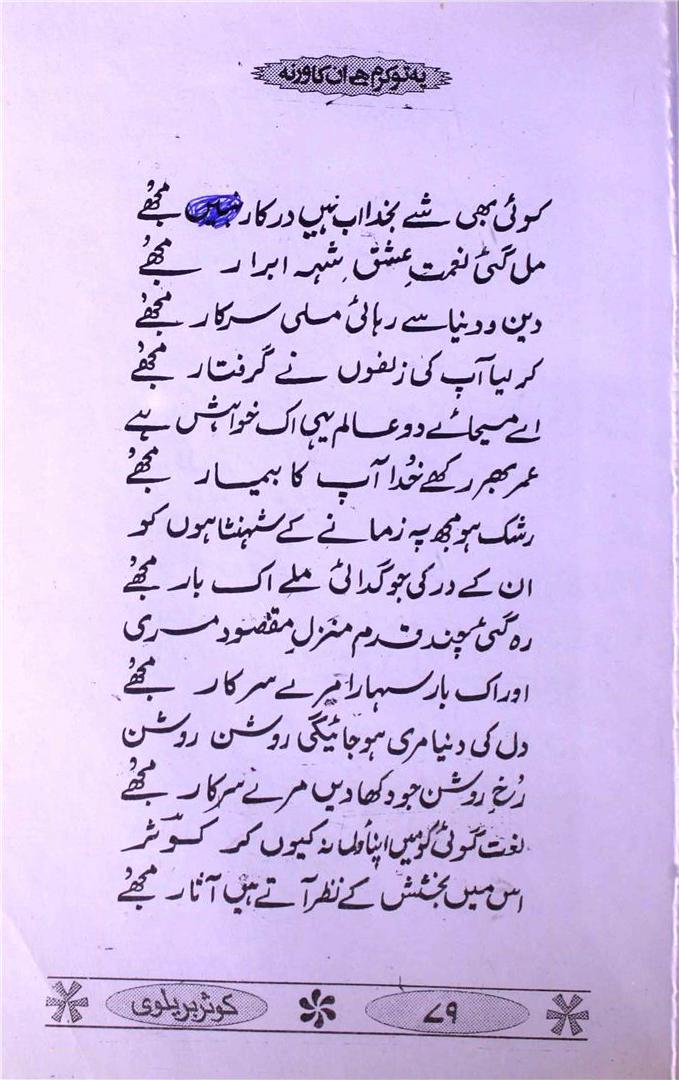 یہ تو کرم ہے ان کا ورنہ
کوئی بھی شے بخدا اب نہیں درکار مجھے
مل گئی نعمتِ عشقِ شہہ ابرار مجھے
دین و دنیا سے رہائی ملی سرکار مجھے
کر لیا آپ کی زلفوں نے گرفتار مجھے
اے مسیحائے دو عالم یہی اک خواہش ہے
عمر بھر رکھے خُدا آپ کا بیمار مجھے
رشک ہو مجھ پہ زمانے کے شہنشاہوں کو
ان کے در کی جو گدائی ملے اک بار مجھے
رہ گئی چند قدم منزلِ مقصود مری
اور اک بار سہارا مرے سرکار مجھے
دل کی دنیا مری ہو جائیگی روشن روشن
رُخِ روشن جو دکھا دیں مرے سرکار مجھے
نعت گوئی کو میں اپناؤں نہ کیوں کر کوثر
اس میں بخشش کے نظر آتے ہیں آثار مجھے
۷۹
کوثر بریلوی